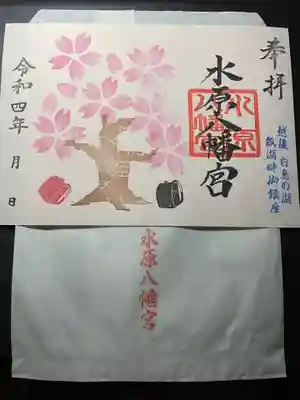 奉拝
越後 白鳥の湖
瓢湖畔御鎮座
水原八幡宮
水原八幡宮
令和四年 月 日
水原八幡宮